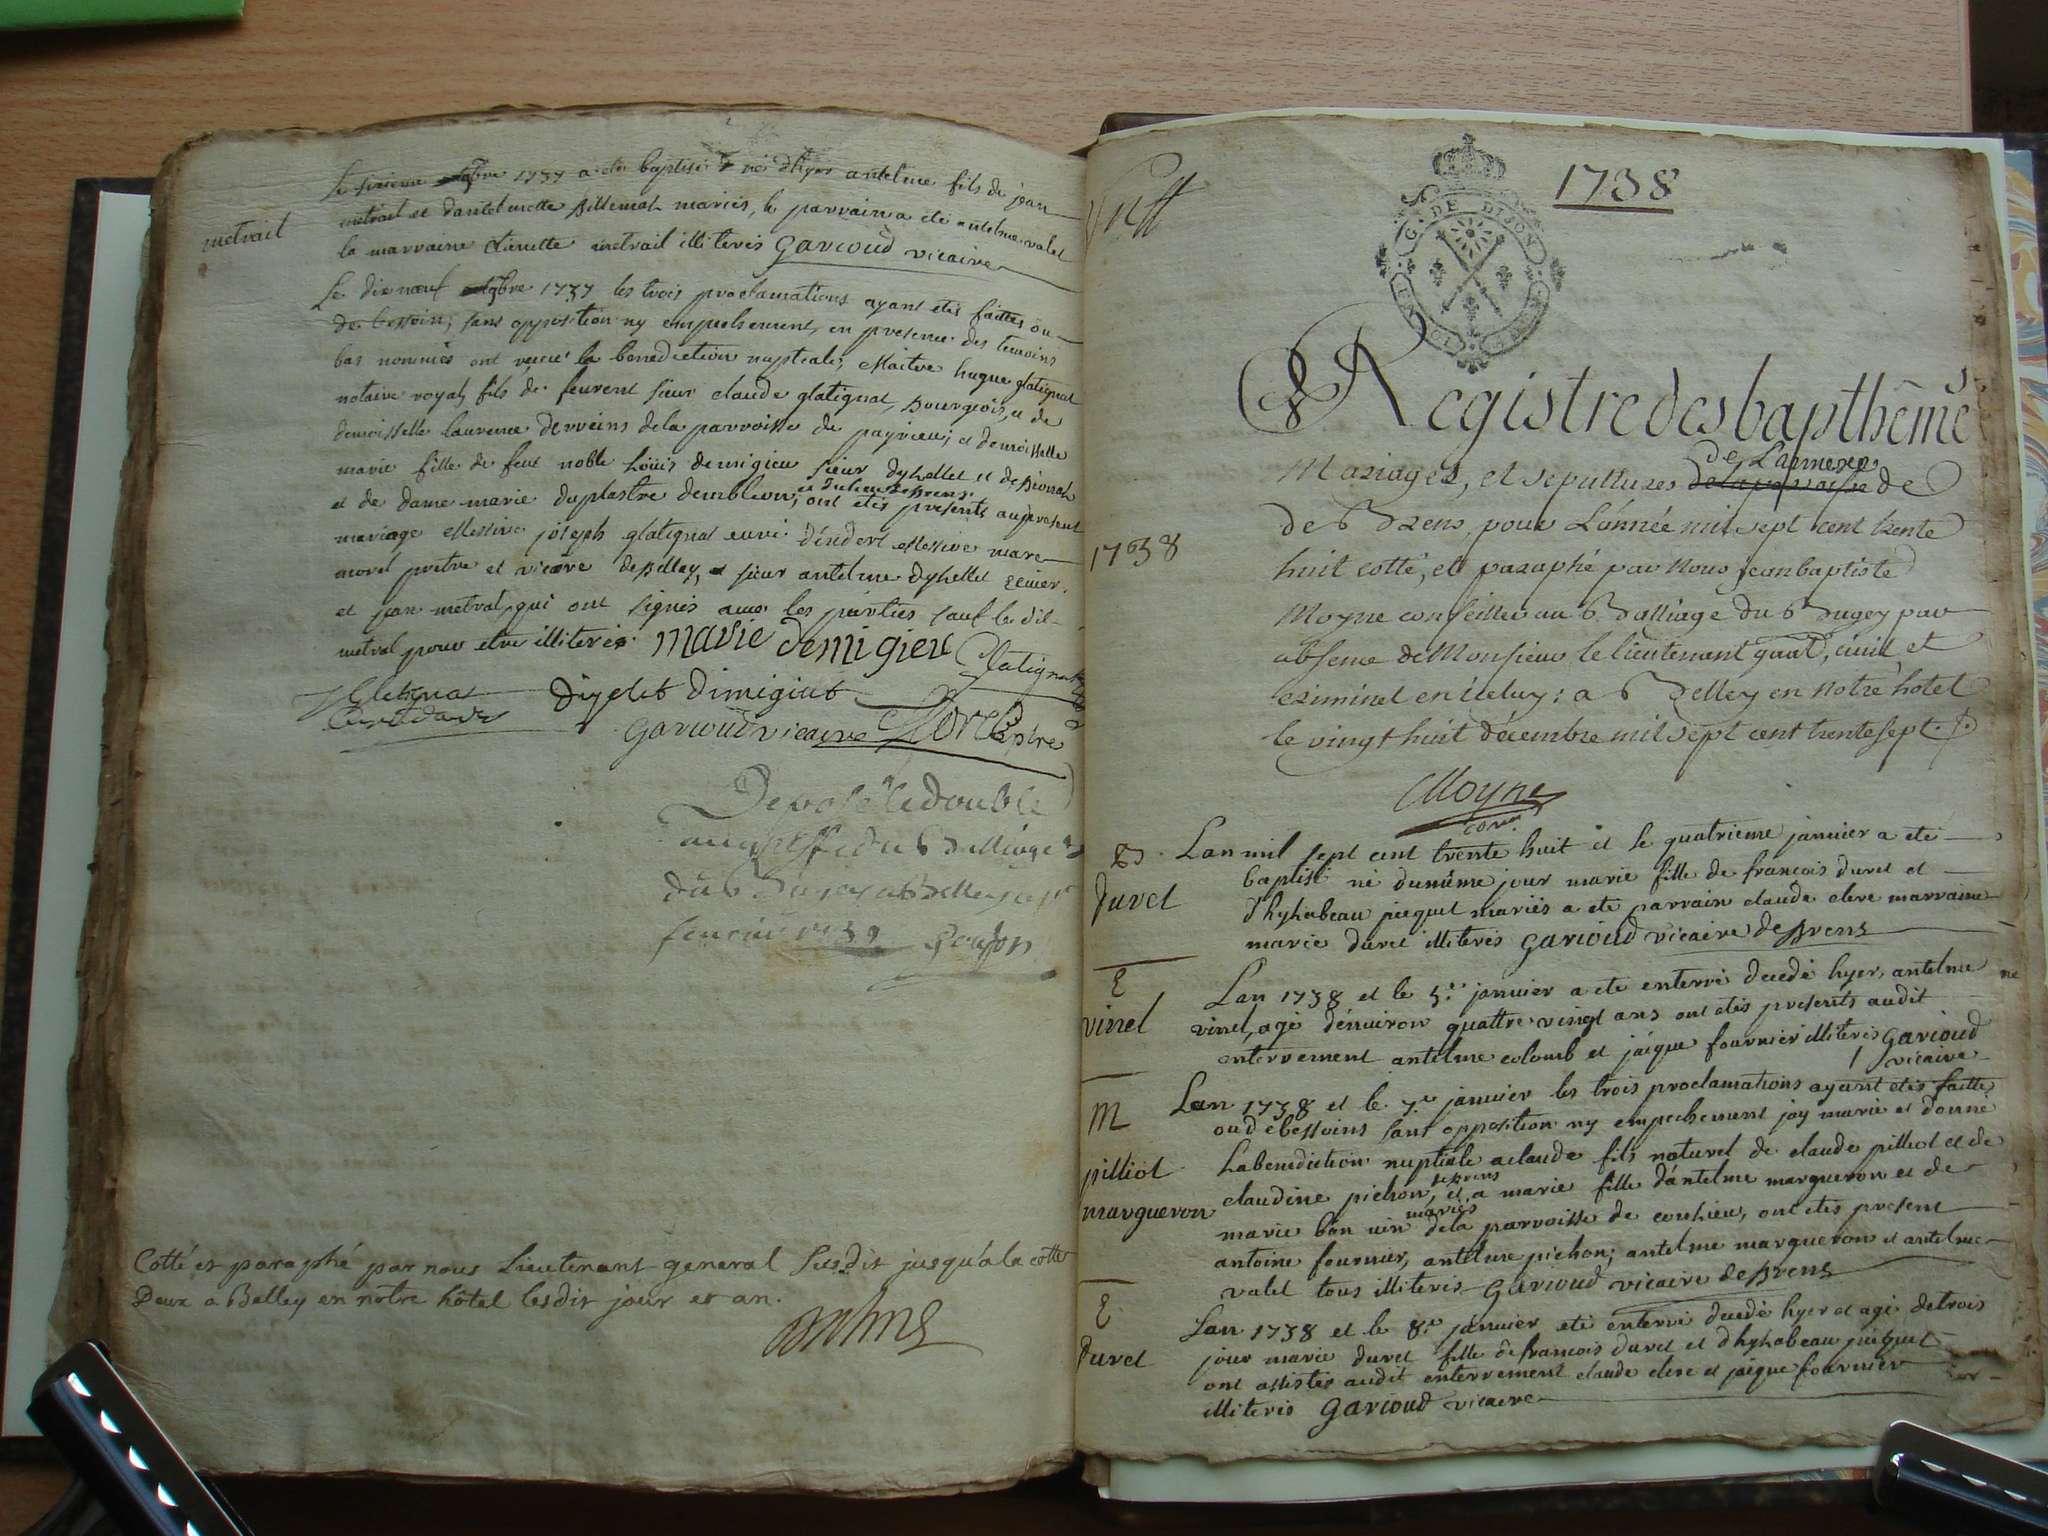 metrail
1737 a ete baptisé né d'hyer antelme fils de jean
metrail et dantelmette pillemat mariés, le parrain a eté antelme valet
la marraine metrail illiterés Garioud vicaire
Le dix neuf 1737 les trois proclamations ayant etés faittes ou
de bessoin, sans opposition ny empechement, en presence des temoins
bas nommés ont recue la benediction nuptiale, Maitre hugue glatignat
notaire royal, fils de sieur claude glatignat, Bourgeois, et de
demoisselle laurence de la parroisse de et demoisselle
marie fille de feu noble Loüis demigieu sieur dyhellet et de
et de dame marie duplastre ont etés presents au present
mariage Messire joseph glatignat curé Messire marc
morel pretre et vicaire de Belley, sieur antelme dyhellet
et jean metral, qui ont signés avec les parties sauf le dit
metral pour etre illiteré. marie demigieu Glatignat
Garioud vicaire Morel ptre
le double
au greffe du Balliage
du Bugey a Belley
1739
Cotté et paraphé par nous Lieutenant general Susdit jusqu'a la cotte
Deux a Belley en notre hôtel lesdit jour et an.
1738
G DE DIJON
Registre des bapthêmes
de Lannexe
Mariages, et sepultures de la parroisse de
de Brens, pour L'année mil sept cent trente
huit cotté, et paraphé par Nous Jean baptiste
1738
Moyne conseiller au Balliage du Bugey par
absence de Monsieur le lieutenant gnal, civil, et
criminel en iceluy: a Belley en notre hotel
le vingt huit décembre mil sept cent trente sept.
Moyne
B. Lan mil sept cent trente huit et le quatrieme janvier a ete
baptisé né du même jour marie fille de francois duret et
duret d'hysabeau picquet mariés a ete parrain claude clere marraine
marie duret illiterés Garioud vicaire de Brens
E Lan 1738 et le 5e janvier a ete enterré decedé hyer, antelme
vinel vinel, agé d'enuiron quattre vingt ans ont etés presents audit
enterrement antelme colomb et jacque fournier illiterés Garioud
vicaire
M Lan 1738 et le 7e janvier les trois proclamations ayant etés faittes
ou de bessoins sans opposition ny empechement jay marié et donné
pilliot La benediction nuptiale a claude fils naturel de claude pilliot et de
claudine pichon, et a marie fille d'antelme margueron et de
margueron
mariés
marie de la parroisse de ont etés present
antoine fournier, antelme pichon; antelme margueron et antelme
valet tous illiterés Garioud vicaire de Brens
E Lan 1738 et le 8e janvier eté enterré decedé hyer et agé de trois
duret jour marie duret fille de francois duret et d'hysabeau picquet
ont assistés audit enterrement claude clere et jacque fournier
illiterés Garioud vicaire